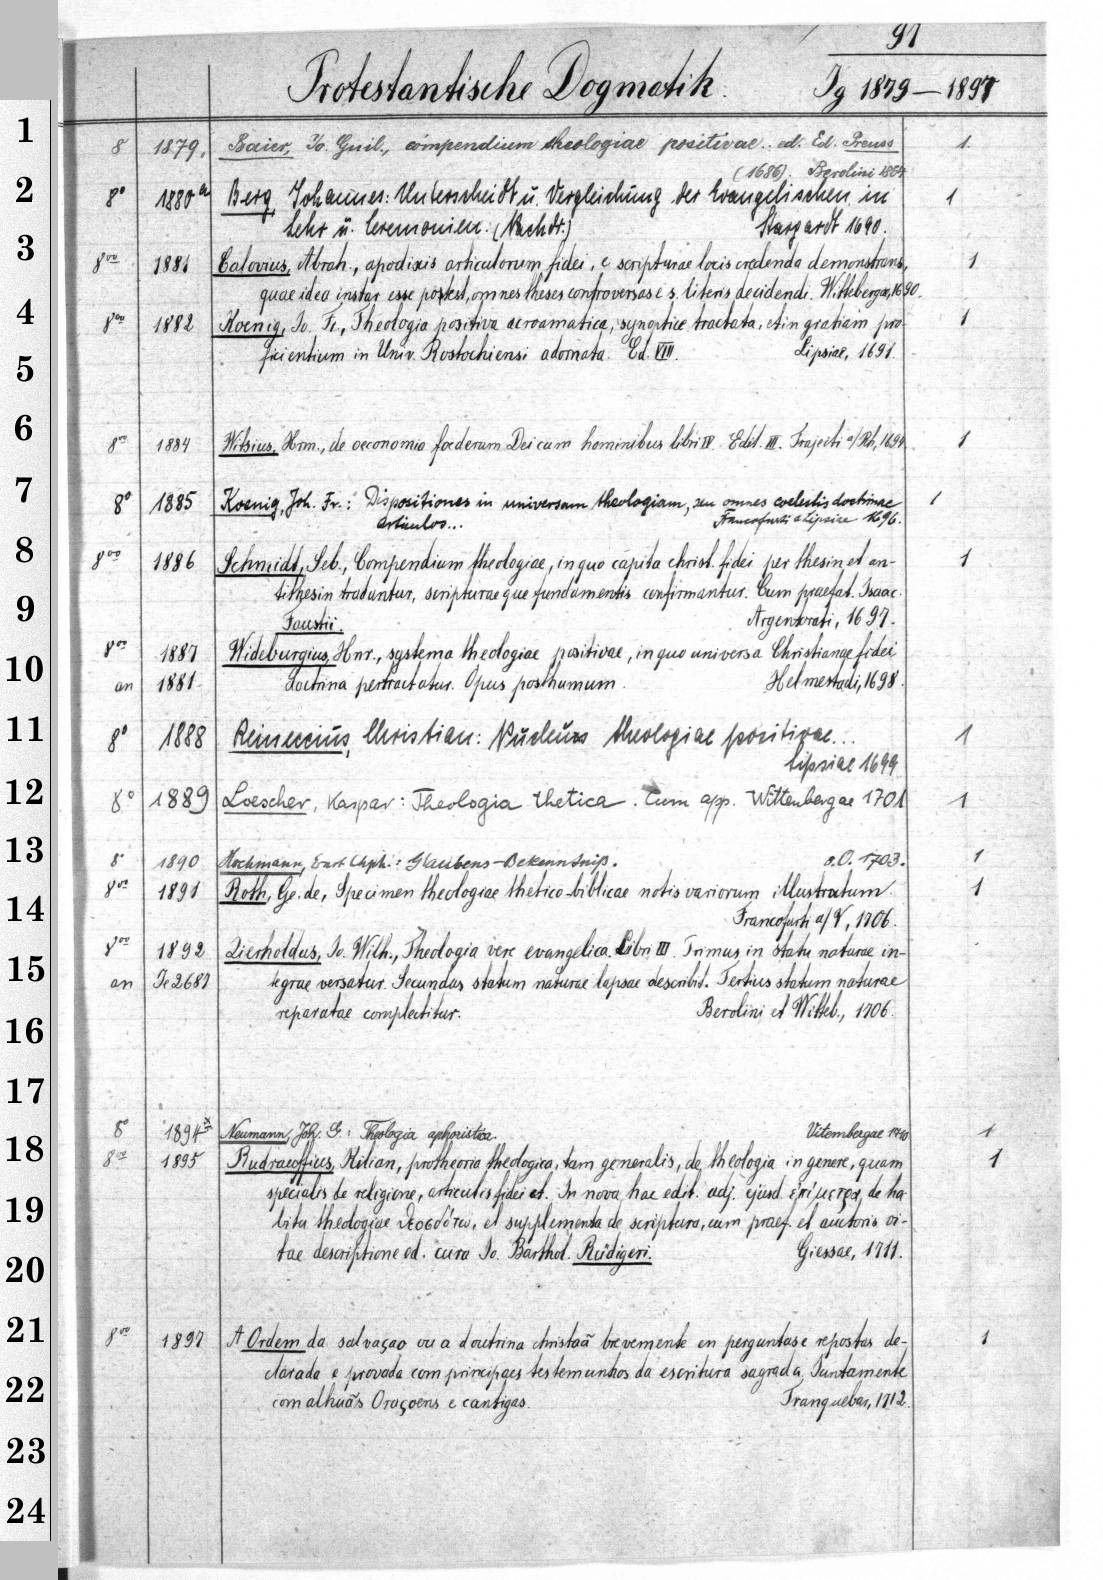 91
Protestantische Dogmatik. Ig 1879–1897
1
8 1879. Baier, Jo. Guil., compendium theologiae positivae.. ed. Ed. Preuss 1.
(1686). Berolini 1864
2
8° 1880 a Berg, Johannes: Unterscheidt u. Vergleichung der Evangelischen in 1
Lehr u. Ceremonien. (Nachdr.) Stargardt 1690.
3
8vo 1881 Calovius, Abrah., apodixis articulorum fidei, e scripturae locis credenda demonstrans, 1
quae idea instar esse potest, omnes theses controversas e s. literis decidendi. Witteberga, 1690.
4
8vo 1882 Koenig, Jo. Fr., Theologia positiva acroamatica, synoptice tractata, et in gratiam pro- 1
ficientium in Univ. Rostochiensi adornata. Ed. VIII. Lipsiae, 1691.
5
6
8vo 1884 Witsius, Hrm., de oeconomia foederum Dei cum hominibus libri IV. Edit. III. Trajecti a/Rh, 1694 1
7
8° 1885 Koenig, Joh. Fr.: Dispositiones in universam theologiam, seu omnes coelestis doctrinae 1
articulos... Francofurti a Lipsiae 1696.
8
8vo 1886 Schmidt, Seb., Compendium theologiae, in quo capita christ. fidei per thesin et an- 1
tithesin traduntur, scripturaeque fundamentis confirmantur. Cum praefat. Isaac.
9
Faustii. Argentorati, 1697.
8vo 1887 Wideburgius, Hnr., systema theologiae positivae, in quo universa Christianae fidei
10
an 1881 doctrina pertractatur. Opus posthumum. Helmestadi, 1698.
11
8° 1888 Reineccius, Christian: Nucleus theologiae positivae... 1
Lipsiae 1699
12
8° 1889 Loescher, Kaspar: Theologia thetica. Cum app. Wittenbergae 1701 1
13
8° 1890 Hochmann, Ernst Chph.: Glaubens-Bekenntniß. o.O. 1703. 1
8vo 1891 Roth, Ge. de, Specimen theologiae thetico-biblicae notis variorum illustratum. 1
14
Francofurti a/V, 1706.
8vo 1892 Zierholdus, Jo. Wilh., Theologia vere evangelica. Libri III. Primus in statu naturae in-
15
an Ie 2687 tegrae versatur. Secundus statum naturae lapsae describit. Tertius statum naturae
reparatae complectitur. Berolini et Witteb., 1706.
16
17
8° 1894 Neumann, Joh. G.: Theologia aphoristica. Vitembergae 1710 1
18
8vo 1895 Rudrauffius, Kilian, protheoria theologica, tam generalis, de theologia in genere, quam 1
specialis de religione, articulis fidei et. In nova hac edit. adj. ejusd. ἐπίμετρα, de ha-
19
bitu theologiae θεοσδότω, et supplementa de scriptura, cum praef. et auctoris vi-
tae descriptione ed. cura Jo. Barthol. Rüdigeri. Giessae, 1711.
20
21
8vo 1897 A Ordem da salvaçao ou a doutrina christaã brevemente en perguntas e repostas de- 1
clarada e provada com principaes testemunhos da escritura sagrada, Juntamente
22
com alhuãs Oraçoens e cantigas. Tranquebar, 1712.
23
24